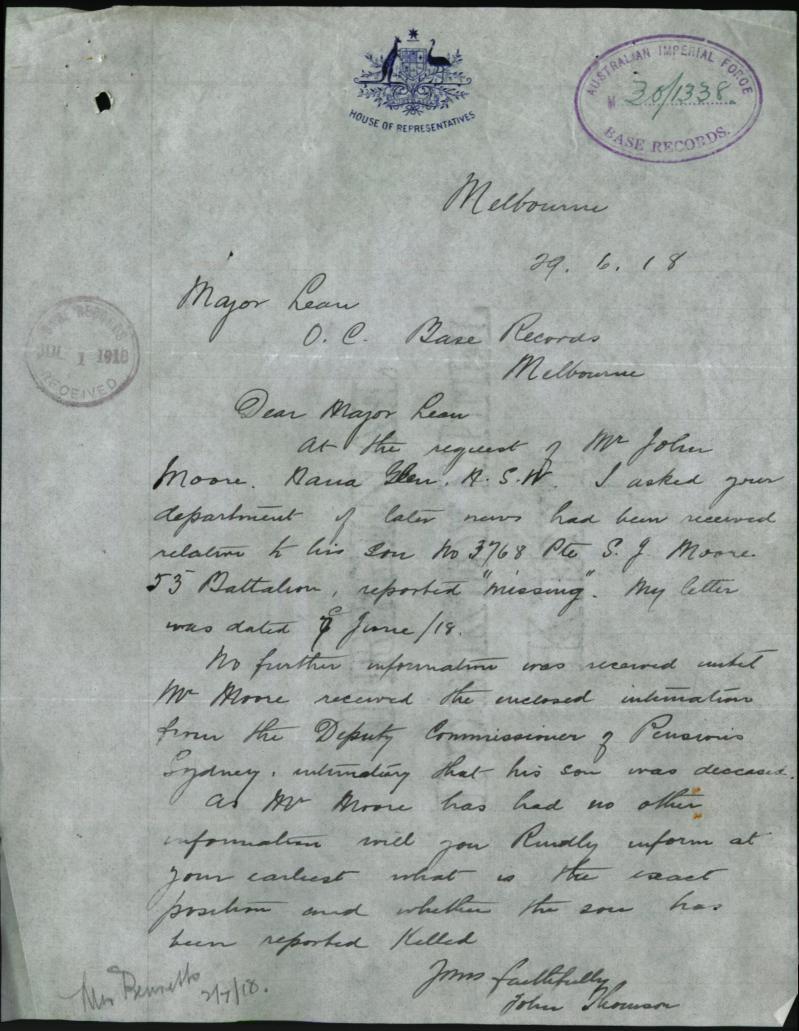 HOUSE OF REPRESENTATIVES
AUSTRALIAN IMPERIAL FORCE
30/1338.
BASE RECORDS.
Melbourne
29. 6. 18
Major Lean
O. C. Base Records
Melbourne
RECORDS
JUL 1 1918
RECEIVED
Dear Major Lean
At the request of Mr John
Moore. N. S. W. I asked your
department if later news had been received
relative to his son No 3768 Pte S. J. Moore
53 Battalion, reported "missing". My letter
was dated June/18.
No further information was received until
Mr Moore received the enclosed intimation
from the Deputy Commissioner of Pensions
Sydney, intimating that his son was deceased.
As Mr Moore has had no other
information will you kindly inform at
your earliest what is the exact
position and whether the son has
been reported killed
Yours faithfully
John Thomson
Bennetts
2/7/18.